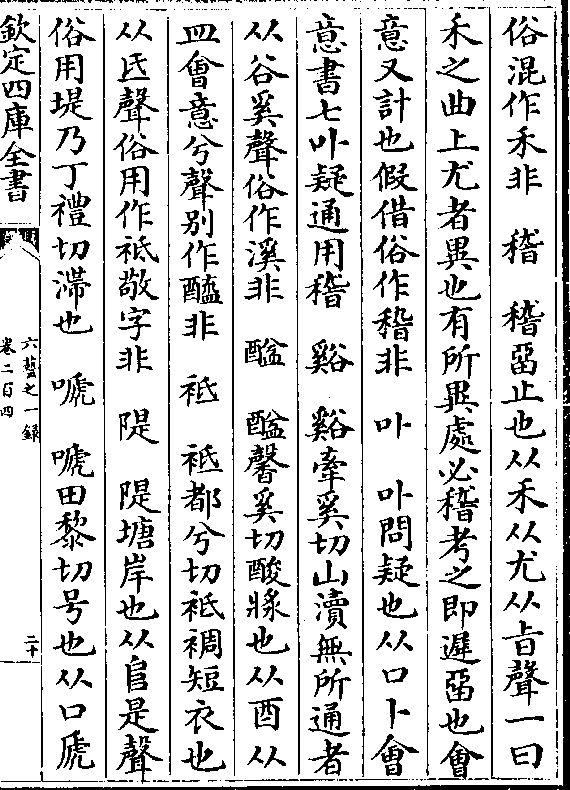 俗混作禾非　稽　稽畱止也从禾从尤从旨聲一曰
禾之曲上尤者異也有所異處必稽考之即遲畱也會
意又計也假借俗作稽非　卟　卟問疑也从口卜會
意書七卟疑通用稽　谿　谿牽奚切山瀆無所通者
从谷奚聲俗作溪非　醯　醯馨奚切酸㵼也从酉从
皿會意兮聲别作醯非　袛　袛都兮切袛裯短衣也
从氐聲俗用作袛敬字非　隄　隄塘岸也从𨸏是聲
俗用堤乃丁禮切滯也　嗁　嗁田黎切号也从口虒
欽定四庫全書
六藝之一録
卷二百四
二十